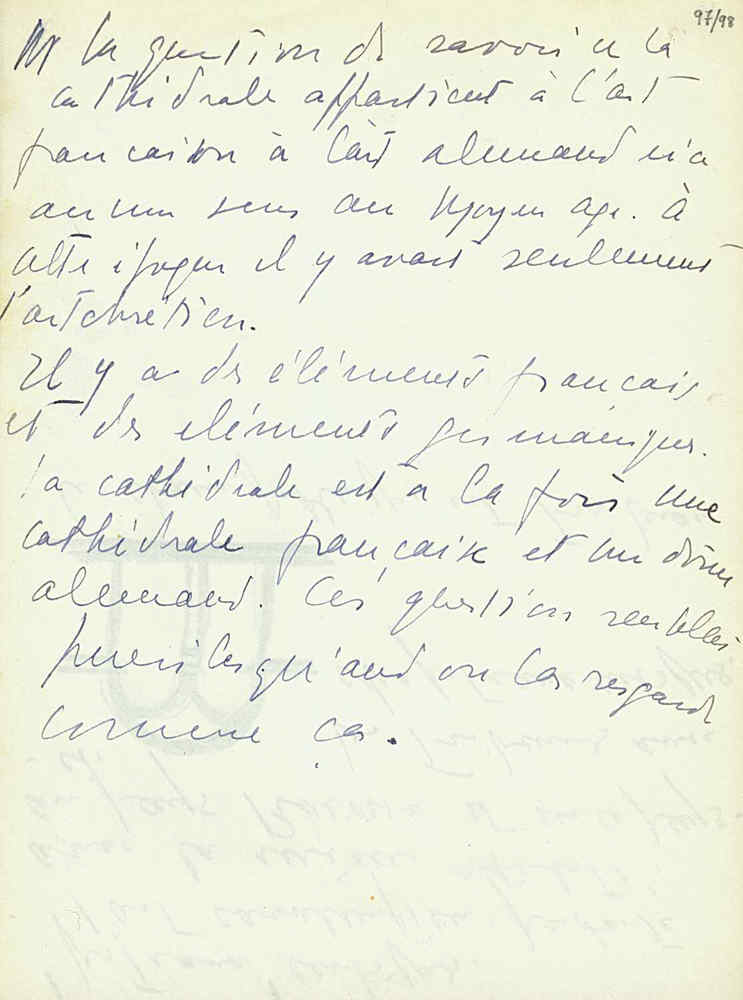 97/98
la question de savoir si la
cathédrale appartient à l'art
francais ou à l'art allemand n'a
aucun sens au Moyen age. à
cette époque il y avait seulement
l'art chrétien.
Il y a des éléments francais
et des eléments germaniques.
la cathédrale est à la fois une
cathédrale française et un dôme
allemand. Ces question semblent
pueriles quand on les regarde
comme ça.